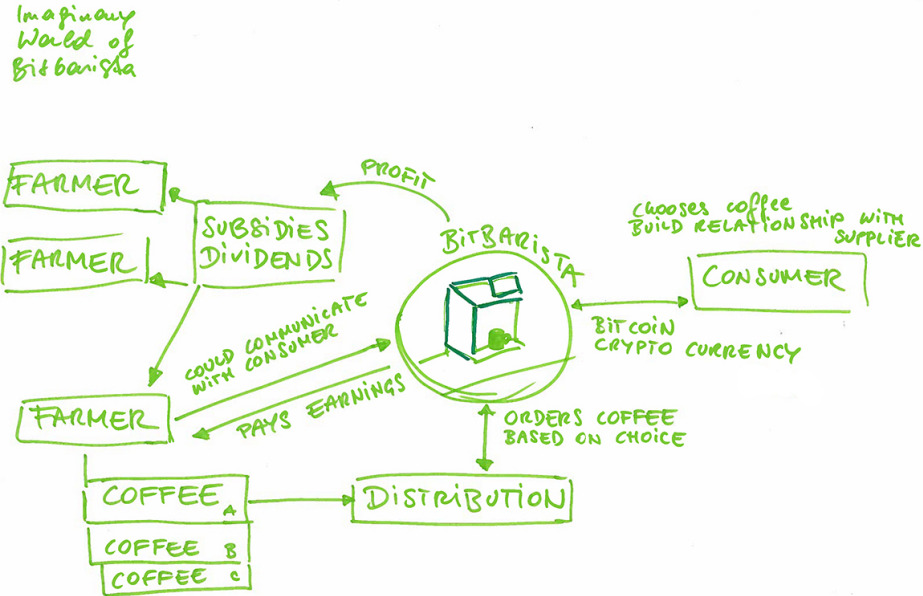 Imaginary
World of
Bitbarista
FARMER
FARMER
SUBSIDIES
DIVIDENDS
PROFIT
BITBARISTA
CHOOSES COFFEE
BUILD RELATIONSHIP WITH
SUPPLIER
CONSUMER
BITCOIN
CRYPTO CURRENCY
COULD COMMUNICATE
WITH CONSUMER
PAYS EARNINGS
FARMER
ORDERS COFFEE
BASED ON CHOICE
COFFEE A
COFFEE B
COFFEE C
DISTRIBUTION